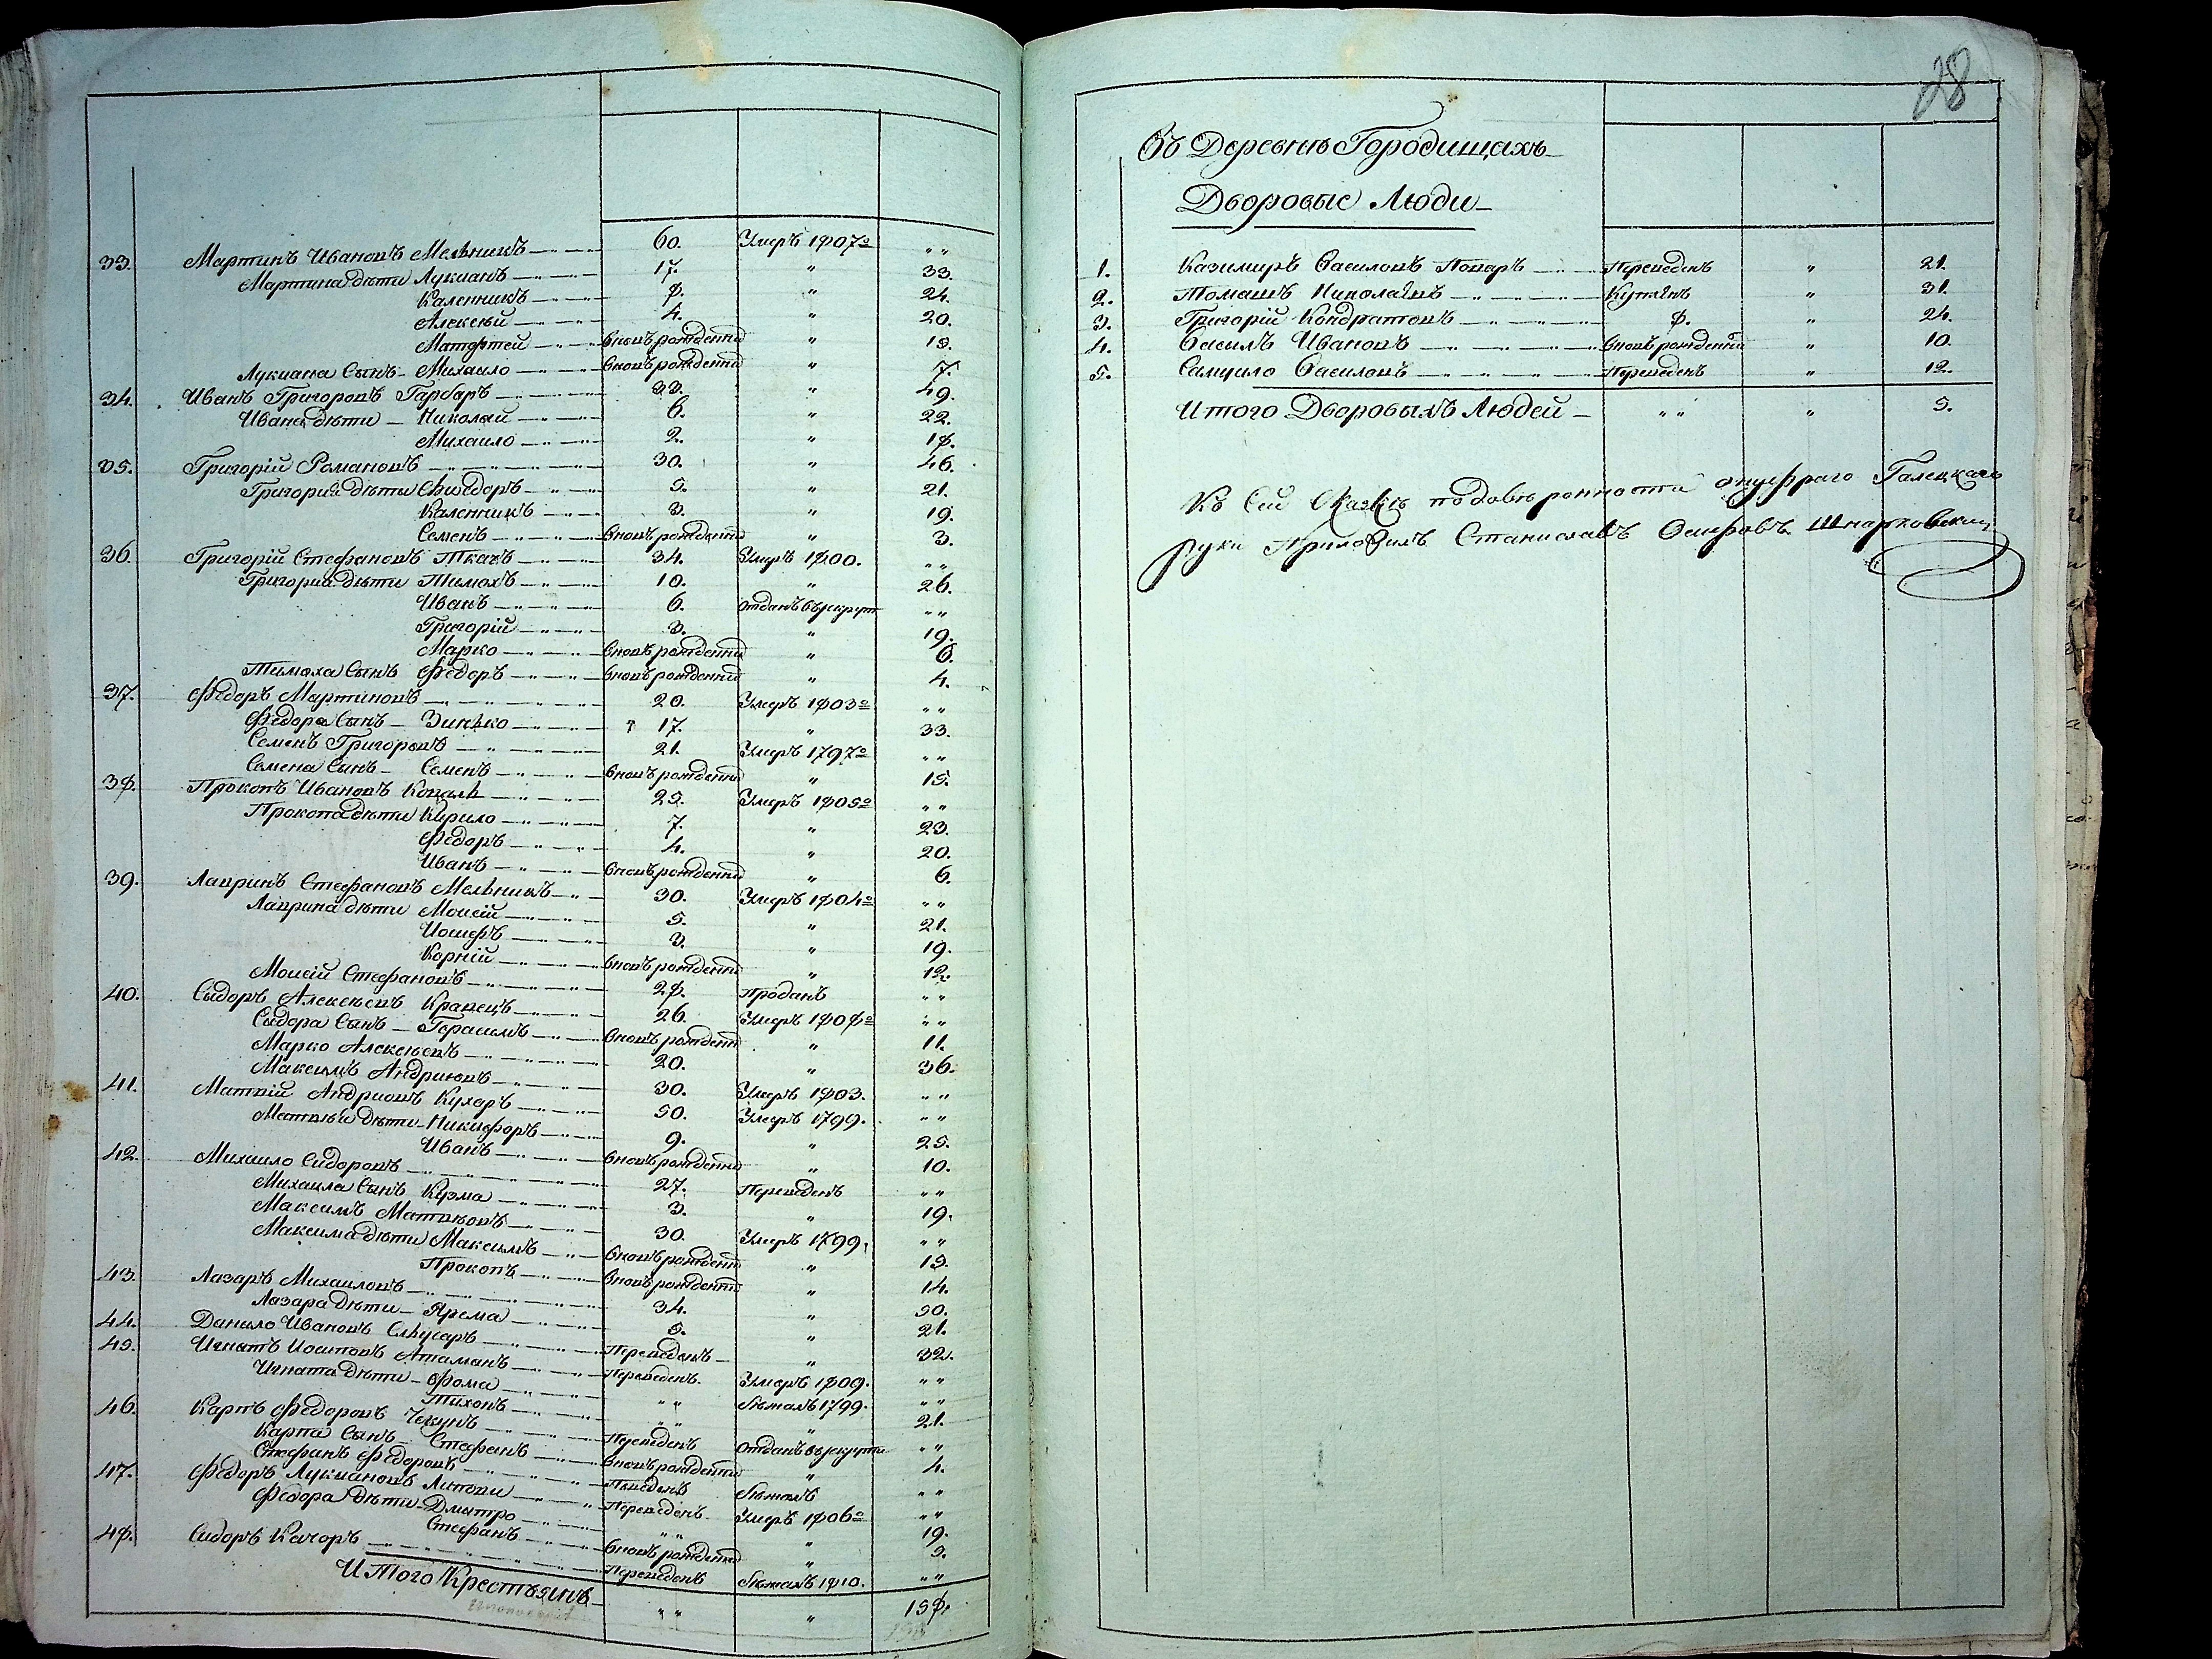 33. Мартинъ Ивановъ Мельникъ 60. Умеръ 1807о „ „
Мартина дѣти Лукианъ 17. „ 33.
Каленникъ 8. „ 24.
Алексѣй 4. „ 20.
Матфтей вновь рожденный „ 15.
Лукиана Сынъ Михайло вновь рожденный „ 7.
34. Иванъ Григоровъ Гарбаръ 33. „ 49.
Ивана дѣти Николай 6. „ 22.
Михайло 2. „ 18.
35. Григорій Романовъ 30. „ 46.
Григория дѣти Фиодоръ 5. „ 21.
Каленникъ 3. „ 19.
Семенъ вновь рожденный „ 3.
36. Григорій Стефановъ Ткачъ 34. Умеръ 1800. „ „
Григория дѣти Тимохъ 10. „ 26.
Иванъ 6. отданъ въ рекрут „ „
Григорій 3. „ 19.
Марко вновь рожденный „ 6.
Тимоха Сынъ Федоръ вновь рожденный „ 4.
37. Федоръ Мартиновъ 20. Умеръ 1803о „ „
Федора Сынъ Зинько 17. „ 33.
Семенъ Григоровъ 21. Умеръ 1797о „ „
Семена Сынъ Семенъ вновь рожденный „ 15.
38. Прокопъ Ивановъ Коваль 25. Умеръ 1805о „ „
Прокопа дѣти Кирило 7. „ 23.
Федоръ 4. „ 20.
Иванъ вновь рожденный „ 6.
39. Лавринъ Стефановъ Мельникъ 30. Умеръ 1804о „ „
Лаврина дѣти Моисій 5. „ 21.
Иосифъ 3. „ 19.
Корній вновь рожденный „ 12.
Моисій Стефановъ 28. Проданъ „ „
40. Сыдоръ Алексѣевъ Кравецъ 26. Умеръ 1808о „ „
Сыдора Сынъ Герасимъ вновь рожденный „ 11.
Марко Алексѣевъ 20. „ 36.
Максимъ Андриювъ 30. Умеръ 1803. „ „
41. Матвій Андриовъ Кухаръ 50. Умеръ 1799. „ „
Матвѣя дѣти Никифоръ 9. „ 25.
Иванъ вновь рожденный „ 10.
42. Михайло Сидоровъ 27. Переведенъ „ „
Михаила Сынъ Кузма 3. „ 19.
Максимъ Матвѣювъ 30. Умеръ 1799. „ „
Максима дѣти Максимъ вновь рожденный „ 15.
Прокопъ вновь рожденный „ 14.
43. Лазаръ Михаиловъ 34. „ 50.
Лазара дѣти Ярема 5. „ 21.
44. Данило Ивановъ Слѣусаръ Переведенъ „ 32.
45. Игнатъ Иосиповъ Атаманъ Переведенъ Умеръ 1809. „ „
Игната дѣти Фома „ „ бѣжалъ 1799. „ „
Тихонъ „ „ „ 21.
46. Карпъ Федоровъ Переведенъ отданъ въ рекруты „ „
Карпа Сынъ Стефанъ вновь рожденный „ 4.
Стефанъ Федоровъ бѣжалъ „ „
47. Федоръ Лукиановъ Переведенъ Умеръ 1806о „ „
Федора дѣти Дмитро „ „ „ 19.
Стефанъ вновь рожденный „ 5.
48. Сидоръ Качоръ Переведенъ бѣжалъ 1810. „ „
Итого Крестьянъ „ „ „ 158.
28
Въ Деревнѣ Городищахъ
Дворовые Люди
1. Казимиръ Василовъ Поваръ Переведенъ „ 21.
2. Томашъ Николаевъ Купленъ „ 31.
3. Григорій Кондратовъ 8. „ 24.
4. Василъ Ивановъ вновь рожденный „ 10.
5. Самуило Василовъ Переведенъ „ 12.
Итого Дворовыхъ Людей „ „ „ 5.
Къ Сей Сказкѣ по довѣренности онуфраго Галецкаго
руки Приложилъ Станиславъ Осифовъ Шнарковский